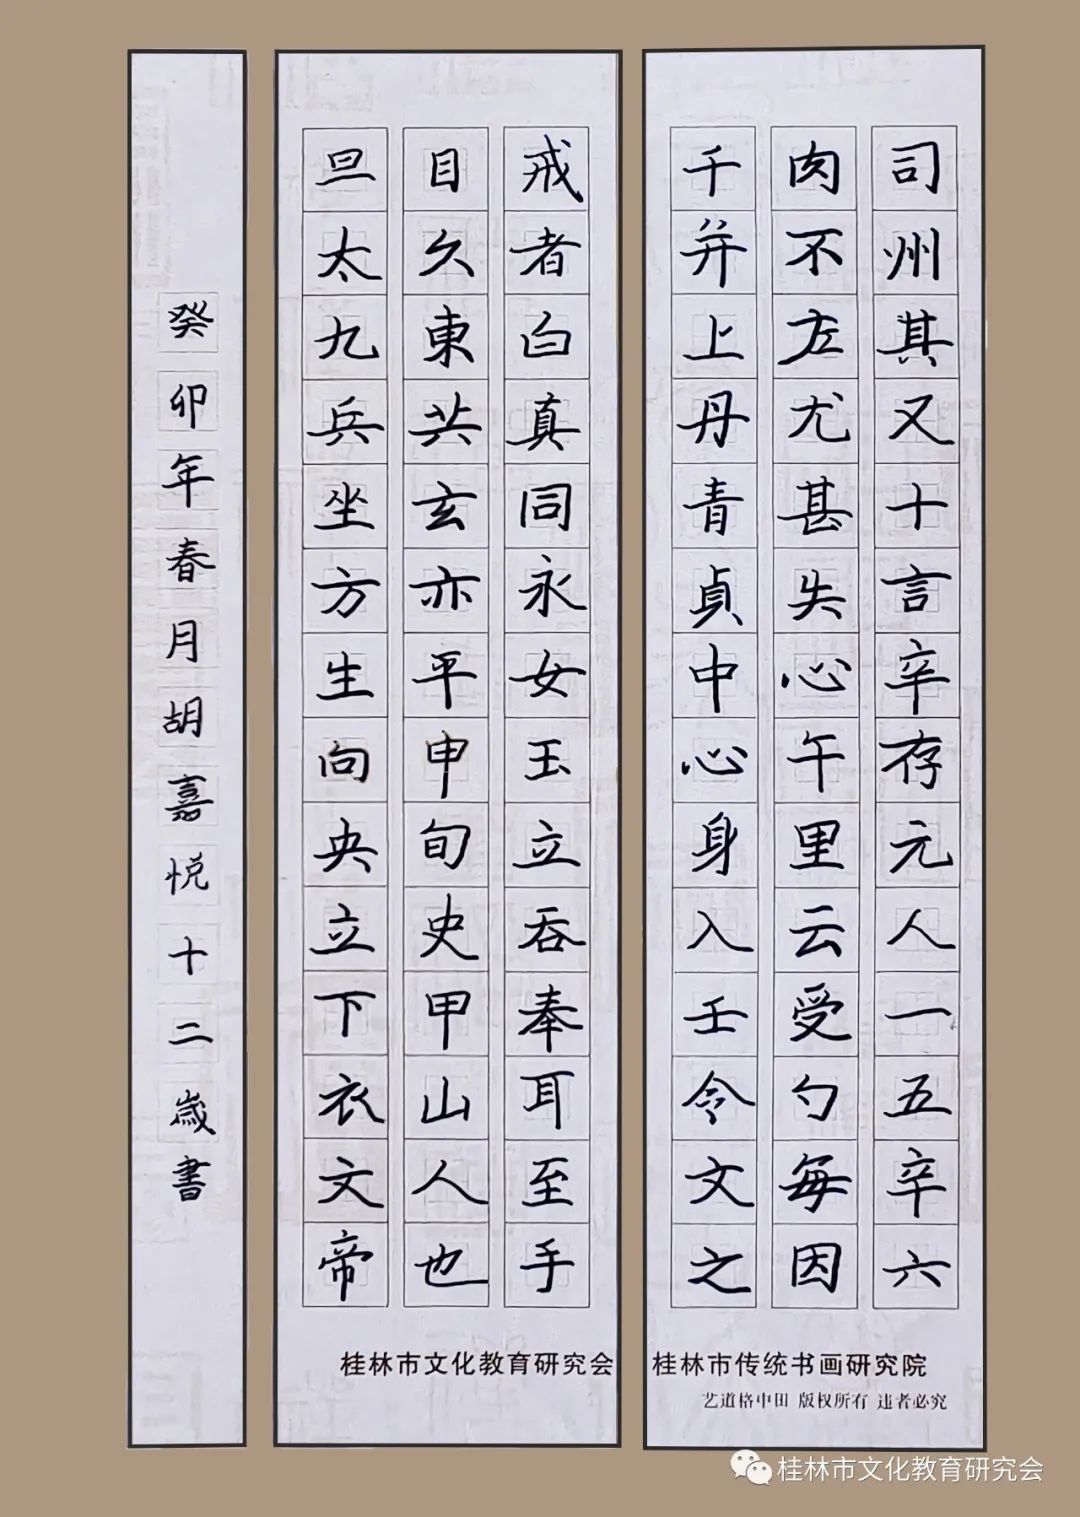 司州其又十言辛存元人一五辛六
肉不左尤甚失心午里云受勺每因
千并上丹青貞中心身入壬令文之
戒者白真同永女玉立吞奉耳至手
目久東共玄亦平申旬史甲山人也
旦太九兵坐方生向央立下衣文帝
癸卯年春月胡嘉悦十二歲書
桂林市文化教育研究会
桂林市传统书画研究院
艺道格中田 版权所有 违者必究
桂林市文化教育研究会